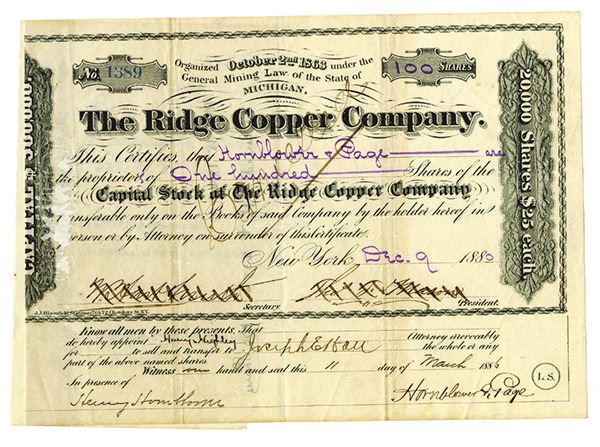 Organized October 2nd 1863 under the
General Mining Law of the State of
MICHIGAN.
No. 1389
100 SHARES
The Ridge Copper Company.
This Certifies, that Hornblower & Page are
the proprietors of One hundred Shares of the
Capital Stock of The Ridge Copper Company
transferable only on the Books of said Company by the holder hereof in
person or by Attorney on surrender of this Certificate.
New York Dec. 9 1880
Secretary.
President.
20000 Shares $25 each.
Know all men by these presents, That
do hereby appoint Attorney irrevocably
for to sell and transfer to Joseph E Hall the whole or any
part of the above named shares.
Witness our hand and seal this 11 day of March 1886
In presence of
Henry Hornblower
Hornblower & Page
L.S.